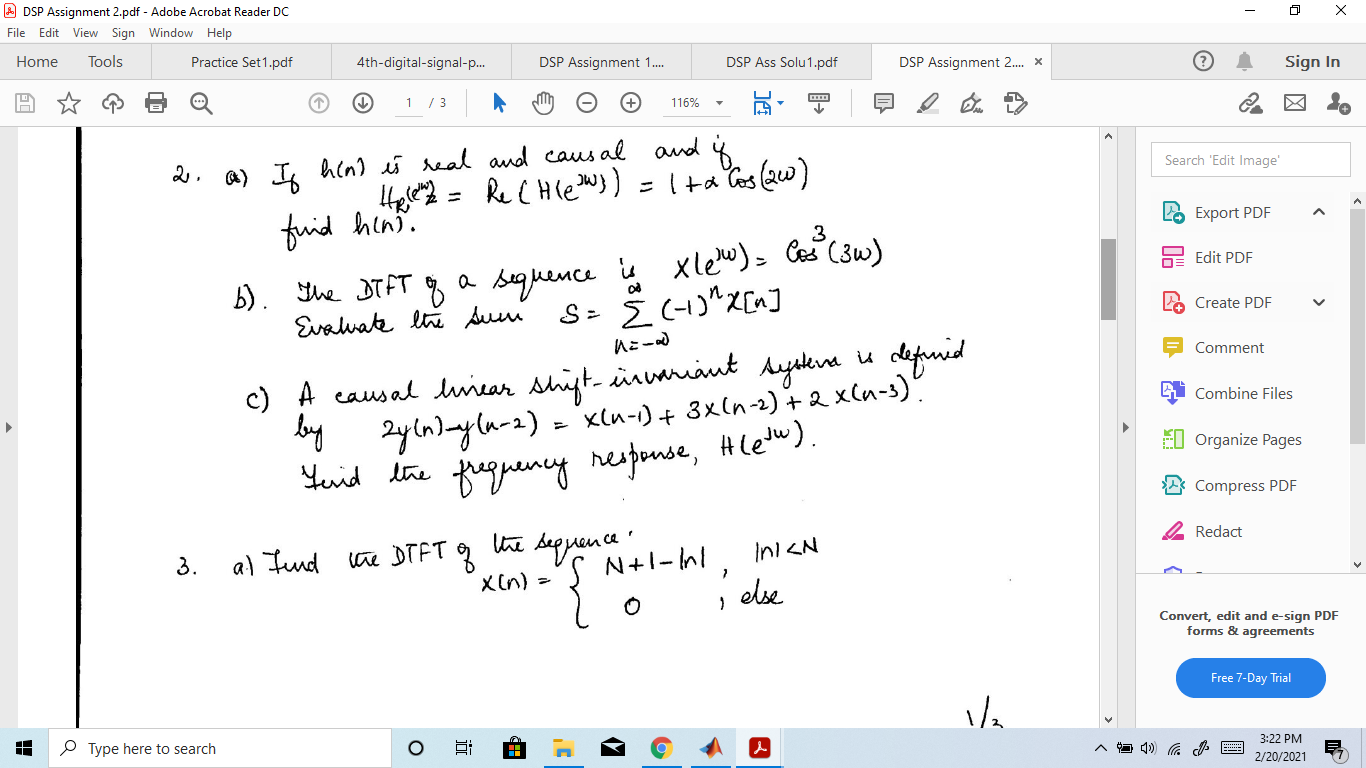 DSP Assignment 2.pdf - Adobe Acrobat Reader DC
File Edit View Sign Window Help
Home Tools Practice Set1.pdf 4th-digital-signal-p... DSP Assignment 1.... DSP Ass Solu1.pdf DSP Assignment 2.... ×
Sign In
1 / 3 116%
2. a) If h(n) is real and causal and if
H_R(e^jω) = Re(H(e^jω)) = 1+α Cos(2ω)
find h(n).
b). The DTFT of a sequence is X(e^jω) = Cos^3(3ω)
Evaluate the sum S = ∑ (-1)^n x[n]
∞
n=-∞
c) A causal linear shift-invariant system is defined
by 2y(n)-y(n-2) = x(n-1) + 3x(n-2) + 2x(n-3).
Find the frequency response, H(e^jω).
3. a) Find the DTFT of the sequence.
x(n) = { N+1-|n| , |n|<N
0 , else
1/3
Search 'Edit Image'
Export PDF
Edit PDF
Create PDF
Comment
Combine Files
Organize Pages
Compress PDF
Redact
Convert, edit and e-sign PDF
forms & agreements
Free 7-Day Trial
Type here to search
3:22 PM
2/20/2021
7